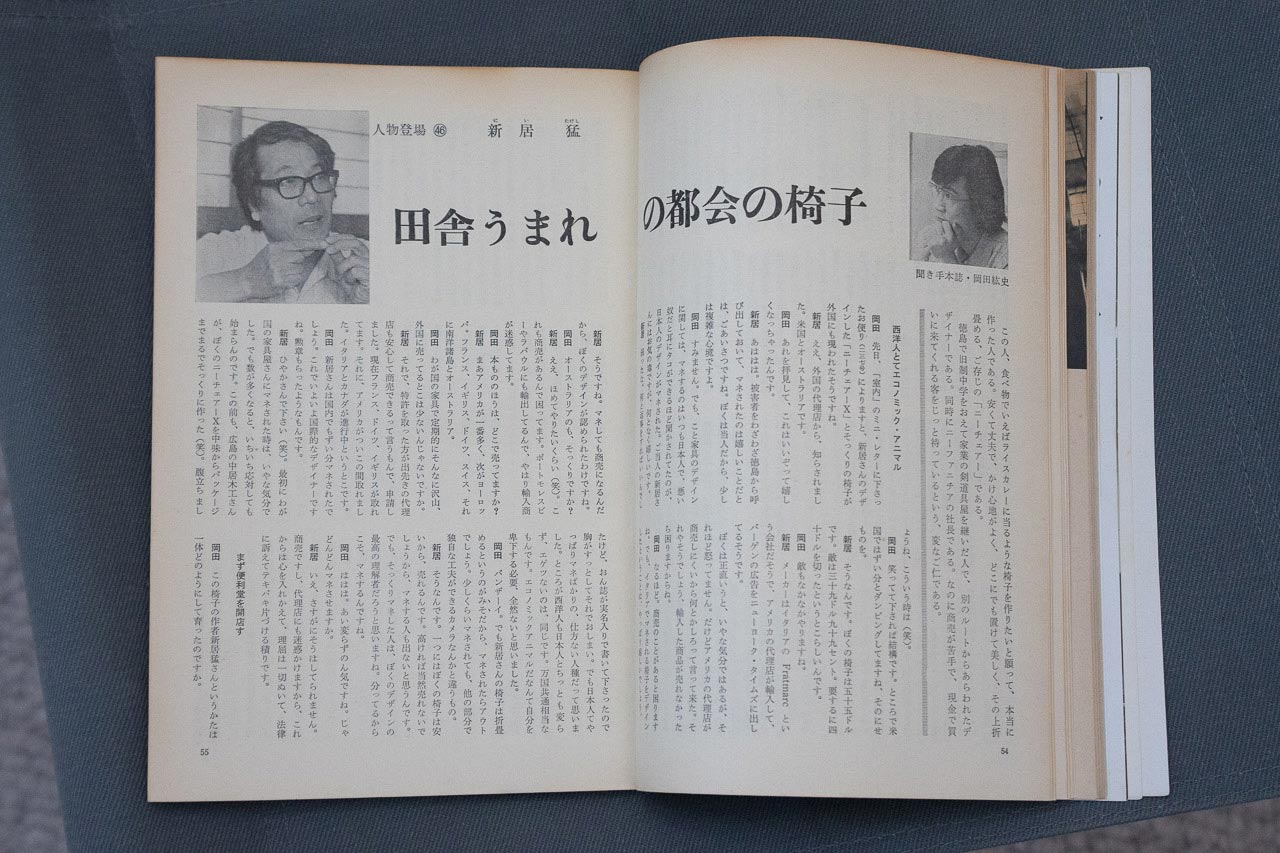 人物登場 ㊻ 新居 猛
にい たけし
田舎うまれの都会の椅子
聞き手本誌・岡田紘史
この人、食べ物でいえばライスカレーに当るような椅子を作りたいと願って、本当に
作った人である。安くて丈夫で、かけ心地がよく、どこにでも置けて美しく、その上折
畳める。ご存じの「ニーチェアー」である。
徳島で旧制中学をおえて家業の剣道具屋を継いだ人で、別のルートからあらわれたデ
ザイナーである。同時にニーファニチアの社長である。なのに商売が苦手で、現金で買
いに来てくれる客をじっと待っているという、変なご仁である。
西洋人とてエコノミック・アニマル
岡田 先日、「室内」のミニ・レターに下さっ
たお便り(二三七号)によりますと、新居さんのデザ
インした「ニーチェアーX」とそっくりの椅子が
外国にも現われたそうですね。
新居 ええ、外国の代理店から、知らされまし
た。米国とオーストラリアです。
岡田 あれを拝見して、これはいいぞって嬉し
くなっちゃったんです。
新居 あははは。被害者をわざわざ徳島から呼
び出しておいて、マネされたのは嬉しいことだと
は、ごあいさつですね。ぼくは当人だから、少し
は複雑な心境ですよ。
岡田 すみません。でも、こと家具のデザイン
に関しては、マネするのはいつも日本人で、悪い
奴だと耳にタコができるほど聞かされてたのが、
日本人のデザインがマネされた。ご当人の新居さ
んにはお気の毒ですが、何となく嬉しいです。
ようね、こういう時は(笑)。
岡田 笑って下されば結構です。ところで米
国ではずい分とダンピングしてますね、そのにせ
ものを。
新居 そうなんです。ぼくの椅子は五十五ドル
です。敵は三十九ドル九十九セント。要するに四
十ドルを切ったというところらしいんです。
岡田 敵もなかなかやりますね。
新居 メーカーはイタリアの Fratmarc とい
う会社だそうで、アメリカの代理店が輸入して、
バーゲンの広告をニューヨーク・タイムズに出し
てるそうです。
ぼくは正直いうと、いやな気分ではあるが、そ
れほど怒ってません。だけどアメリカの代理店が
商売しにくいから何とかしろって言って来た。そ
れやそうでしょう、輸入した商品が売れなかった
ら困りますからね。
岡田 なるほど。商売のことがあると困ります
54
新居 そうですね。マネしても商売になるんだ
から、ぼくのデザインが認められたわけですね。
岡田 オーストラリアのも、そっくりですか?
新居 ええ、ほめてやりたいくらい(笑)。こ
れも商売があるんで困ってます。ポートモレスビ
ーやラバウルにも輸出してるんで、やはり輸入商
が迷惑してます。
岡田 本もののほうは、どこで売ってますか?
新居 まあアメリカが一番多く、次がヨーロッ
パ。フランス、イギリス、ドイツ、スイス、それ
に南洋諸島とオーストラリア。
岡田 わが国の家具で定期的にそんなに沢山、
外国に売ってるとこは少ないんじゃないですか。
新居 それで、特許を取った方が出先きの代理
店も安心して商売できるって言うもんで、申請し
ました。現在フランス、ドイツ、イギリスが取れ
てます。それに、アメリカがついこの間取れまし
た。イタリアとカナダが進行中というとこです。
岡田 新居さんは国内でもずい分マネされたで
しょう。これでいよいよ国際的なデザイナーです
ね。勲章もらったようなもんです。
新居 ひやかさんで下さい(笑)。最初にわが
国の家具屋さんにマネされた時は、いやな気分で
した。でも数が多くなると、いちいち応対しても
始まらんのです。この前も、広島の中居木工さん
が、ぼくのニーチェアーXを中味からパッケージ
まですまるでそっくりに作った(笑)。腹立ちまし
たけど、おん誌が実名入りで書いて下さったので
胸がすっとしてそれでおしまい。でも日本人てや
っぱりマネばかりの、仕方ない人種だって思いま
した。ところが西洋人も日本人とちっとも変ら
ず、エゲツないのは、同じです。万国共通相当な
もんです。エコノミックアニマルだなんて自分を
卑下する必要、全然ないと思いました。
岡田 バンザーイ。でも新居さんの椅子は折畳
めるというのがみそだから、マネされたらアウト
でしょう。少しくらいマネされても、他の部分で
独自な工夫ができるカメラなんかと違うもの。
新居 そうなんです。一つにはぼくの椅子は安
いから、売れるんです。高ければ当然売れないで
しょうから、マネする人も出ないと思うんです。
でも、そっくりマネした人は、ぼくのデザインの
最高の理解者だろうと思いますね。分ってるから
こそ、マネするんですね。
岡田 ははは。あい変らずのん気ですね。じゃ
どんどんマネさせますか。
新居 いえ、さすがにそうはしてられません。
商売ですし、代理店にも迷惑かけますから、これ
からは心を入れかえて、理屈は一切ぬいて、法律
に訴えてテキパキ片づける積りです。
まず便利堂を開店す
岡田 この椅子の作者新居猛さんというかたは
一体どのようにして育ったのですか。
55